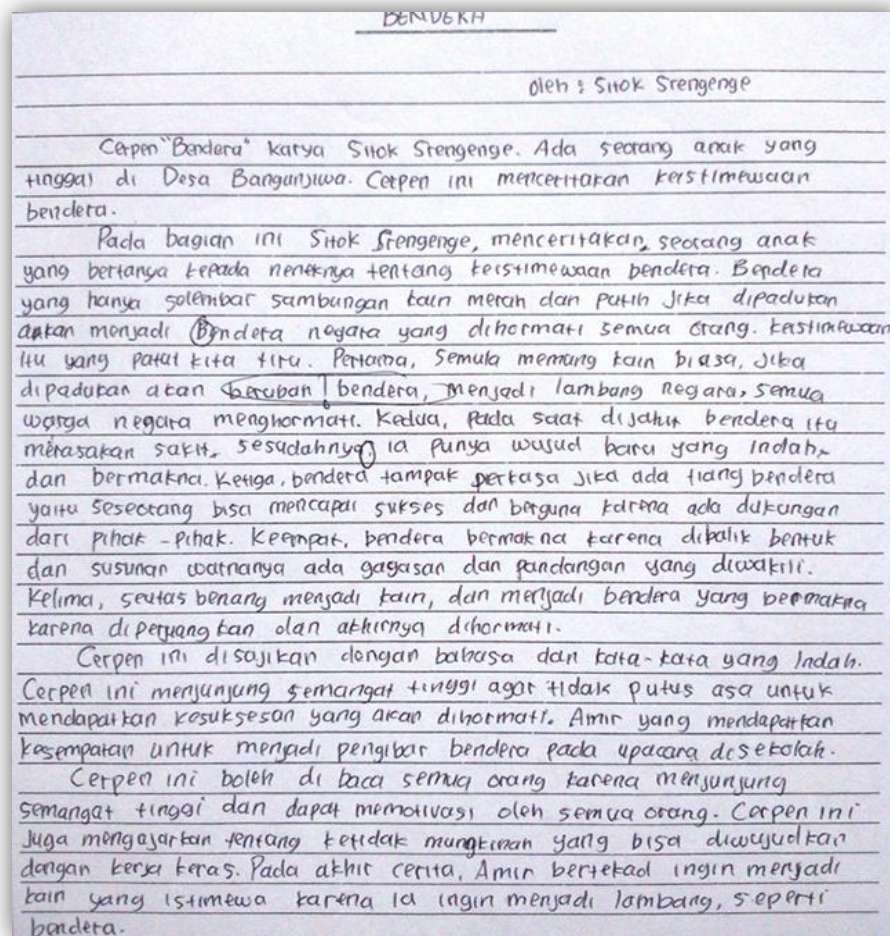 BENDERA
oleh : Sitok Srengenge
Cerpen "Bendera" karya Sitok Srengenge. Ada seorang anak yang
tinggal di Desa Bangunjiwa. Cerpen ini menceritakan keistimewaan
bendera.
Pada bagian ini Sitok Srengenge, menceritakan, seorang anak
yang bertanya kepada neneknya tentang keistimewaan bendera. Bendera
yang hanya selembar sambungan kain merah dan putih jika dipadukan
akan menjadi Bendera negara yang dihormati semua orang. keistimewaan
itu yang patut kita tiru. Pertama, semula memang kain biasa, jika
dipadukan akan berubah bendera, menjadi lambang negara, semua
warga negara menghormati. Kedua, pada saat dijahit bendera itu
merasakan sakit, sesudahnya, ia punya wujud baru yang indah,
dan bermakna. Ketiga, bendera tampak perkasa jika ada tiang bendera
yaitu seseorang bisa mencapai sukses dan berguna karena ada dukungan
dari pihak-pihak. Keempat, bendera bermakna karena dibalik bentuk
dan susunan warnanya ada gagasan dan pandangan yang diwakili.
Kelima, seutas benang menjadi kain, dan menjadi bendera yang bermakna
karena diperjuangkan dan akhirnya dihormati.
Cerpen ini disajikan dengan bahasa dan kata-kata yang indah.
Cerpen ini menjunjung semangat tinggi agar tidak putus asa untuk
mendapatkan kesuksesan yang akan dihormati. Amir yang mendapatkan
kesempatan untuk menjadi pengibar bendera pada upacara disekolah.
Cerpen ini boleh di baca semua orang karena menjunjung
semangat tinggi dan dapat memotivasi oleh semua orang. Cerpen ini
juga mengajarkan tentang ketidak mungkinan yang bisa diwujudkan
dengan kerja keras. Pada akhir cerita, Amir bertekad ingin menjadi
kain yang istimewa karena ia ingin menjadi lambang, seperti
bendera.